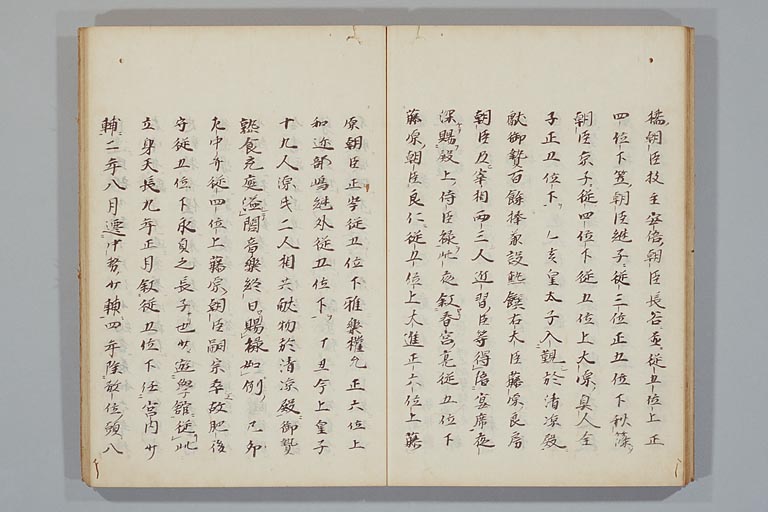 橘朝臣枝主安倍朝臣長谷並從五位上正
四位下笠朝臣継子從三位正五位下秋篠
朝臣京子從四位下從五位上大原真人全
子正五位下乙亥皇太子入覲於清凉殿
献御贄百餘捧兼設熟饌右大臣藤原良房
朝臣及宰相両三人近習臣等得陪宴席夜
深賜殿上侍臣禄此夜叙春宮亮從五位下
藤原朝臣良仁從五位上大進正六位上藤
原朝臣正岑從五位下雅樂權允正六位上
和迩部嶋継外從五位下丁丑今上皇子
十九人源氏二人相共献物於清凉殿御贄
熟食充庭溢閤音樂終日賜禄如例己卯
左中弁從四位上藤原朝臣嗣宗卒故肥後
守從五位下永貞之長子也少遊學館從此
立身天長九年正月叙從五位下任宮内少
輔二年八月遷中務少輔四年除散位頭八